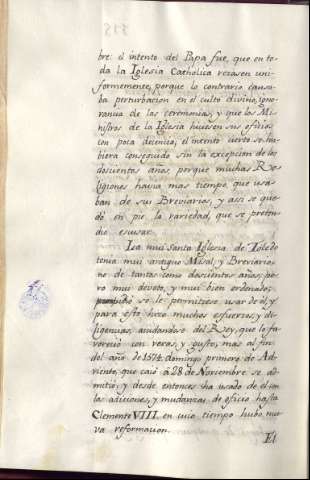 bre: el intento del Papa fue, que en to-
da la Iglesia Catholica rezasen uni-
formemente, porque lo contrario causa-
ba perturbacion en el culto divino, igno-
rancia de las ceremonias, y que los Mi-
nistros de la Iglesia hiciesen sus oficios
con poca decencia, el intento cierto se hu-
biera conseguido sin la excepcion de los
doscientos años, porque muchas Re-
ligiones havia mas tiempo, que usa-
ban de sus Breviarios, y asi se que-
dó en pie la variedad, que se preten-
dió escusar.
La mui Santa Iglesia de Toledo
tenia mui antiguo Misal, y Breviario
no de tantos como doscientos años, pe-
ro mui devoto, y mui bien ordenado,
se le permitiese usar de él, y
para esto hizo muchos esfuerzos, y di-
ligencias, aiudandose del Rey, que lo fa-
voreció con veras, y gusto, mas al fin
del año de 1574. domingo primero de Ad-
viento, que caió á 28 de Noviembre se ad-
mitió, y desde entonces ha usado de él con
las adiciones, y mudanzas de oficio hasta
Clemente VIII. en cuio tiempo hubo nue-
va reformacion.
El